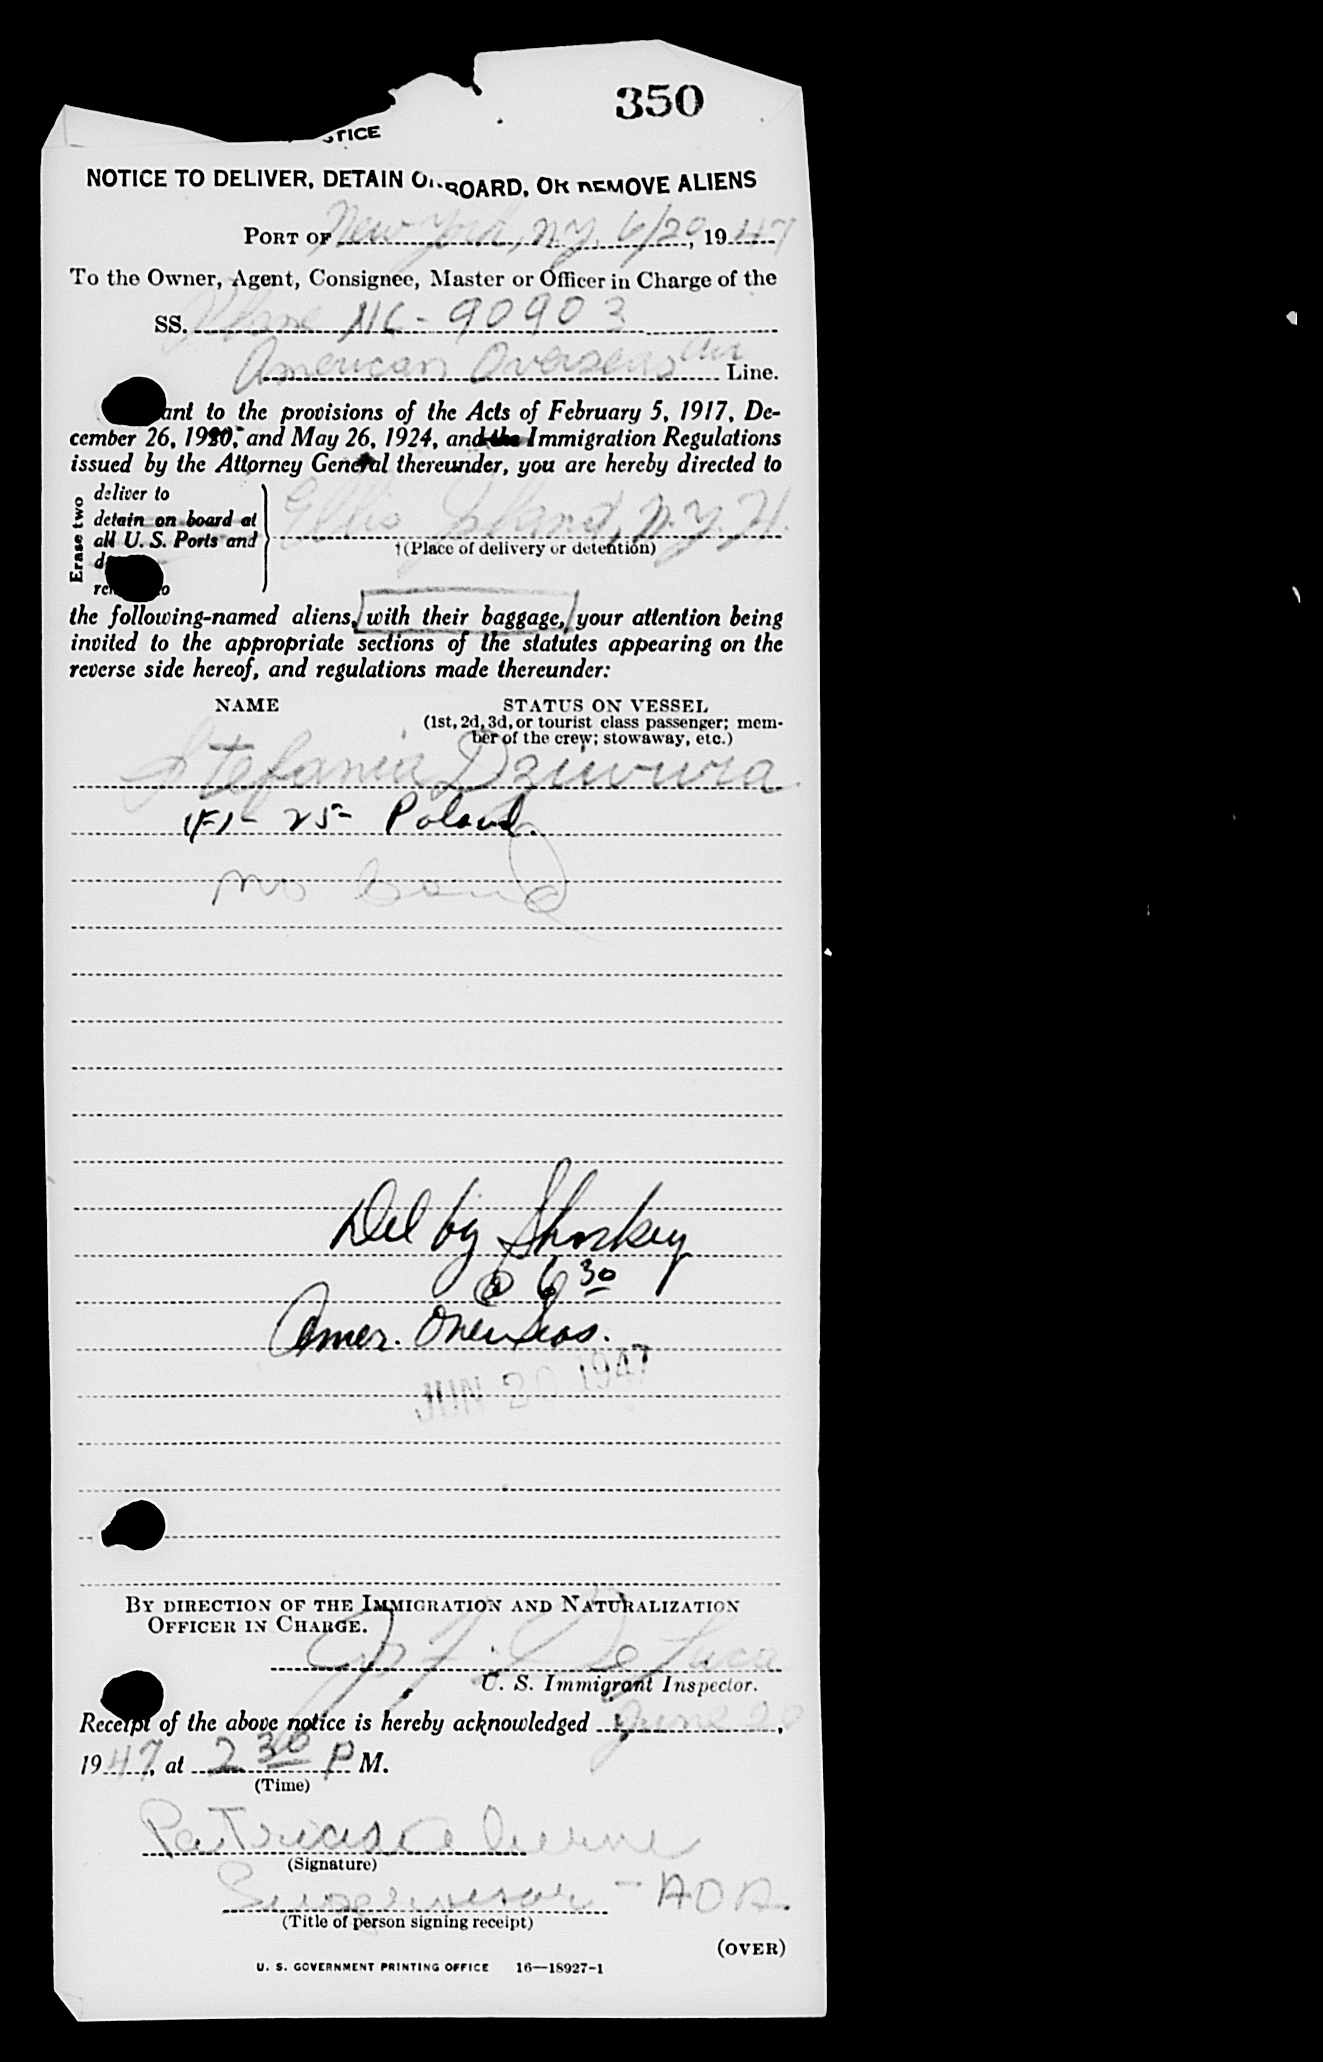 350
NOTICE TO DELIVER, DETAIN ON BOARD, OR REMOVE ALIENS
PORT OF New York, N.Y. 6/20, 1947
To the Owner, Agent, Consignee, Master or Officer in Charge of the
SS. Plane NC-90903
American Overseas Air Line.
ant to the provisions of the Acts of February 5, 1917, De-
cember 26, 1920, and May 26, 1924, and the Immigration Regulations
issued by the Attorney General thereunder, you are hereby directed to
Erase two
deliver to
detain on board at
all U. S. Ports and
Ellis Island, N.Y.H.
†(Place of delivery or detention)
the following-named aliens, with their baggage, your attention being
invited to the appropriate sections of the statutes appearing on the
reverse side hereof, and regulations made thereunder:
NAME STATUS ON VESSEL
(1st, 2d, 3d, or tourist class passenger; mem-
ber of the crew; stowaway, etc.)
Stefania
(F) - 25 - Poland.
no bond
Del by Sharkey
@ 6 30
Amer. Overseas.
JUN 20 1947
BY DIRECTION OF THE IMMIGRATION AND NATURALIZATION
OFFICER IN CHARGE.
De Luca
U. S. Immigrant Inspector.
Receipt of the above notice is hereby acknowledged June 20,
1947, at 2 30 P M.
(Time)
(Signature)
Supervisor - AOA.
(Title of person signing receipt)
(OVER)
U. S. GOVERNMENT PRINTING OFFICE 16—18927-1